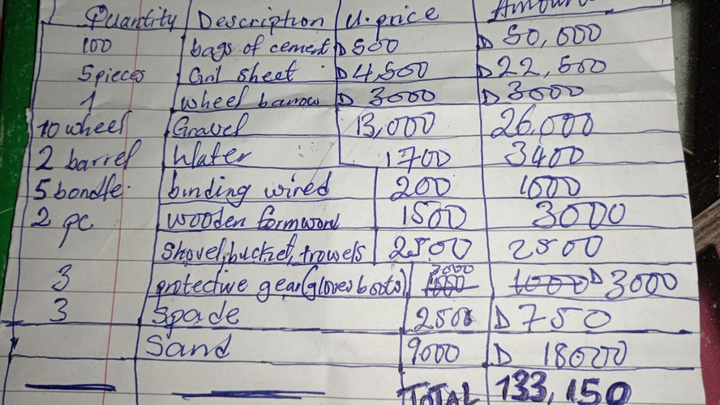 Quantity Description U. price Amount
100 bags of cement D500 D 50,000
5 pieces Cril sheet D4,500 D 22,500
1 wheel barrow D 3000 D 3000
10 wheel Gravel 13,000 26,000
2 barrel Water 1700 3400
5 bondle. binding wired 200 1000
2 pc wooden formword 1500 3000
Shovel, bucket, trowels 2500 2500
3 protective gear (gloves boots) 3000 1000 D 3000
3 Spade 250 D 750
Sand 9000 D 18000
TOTAL 133,150